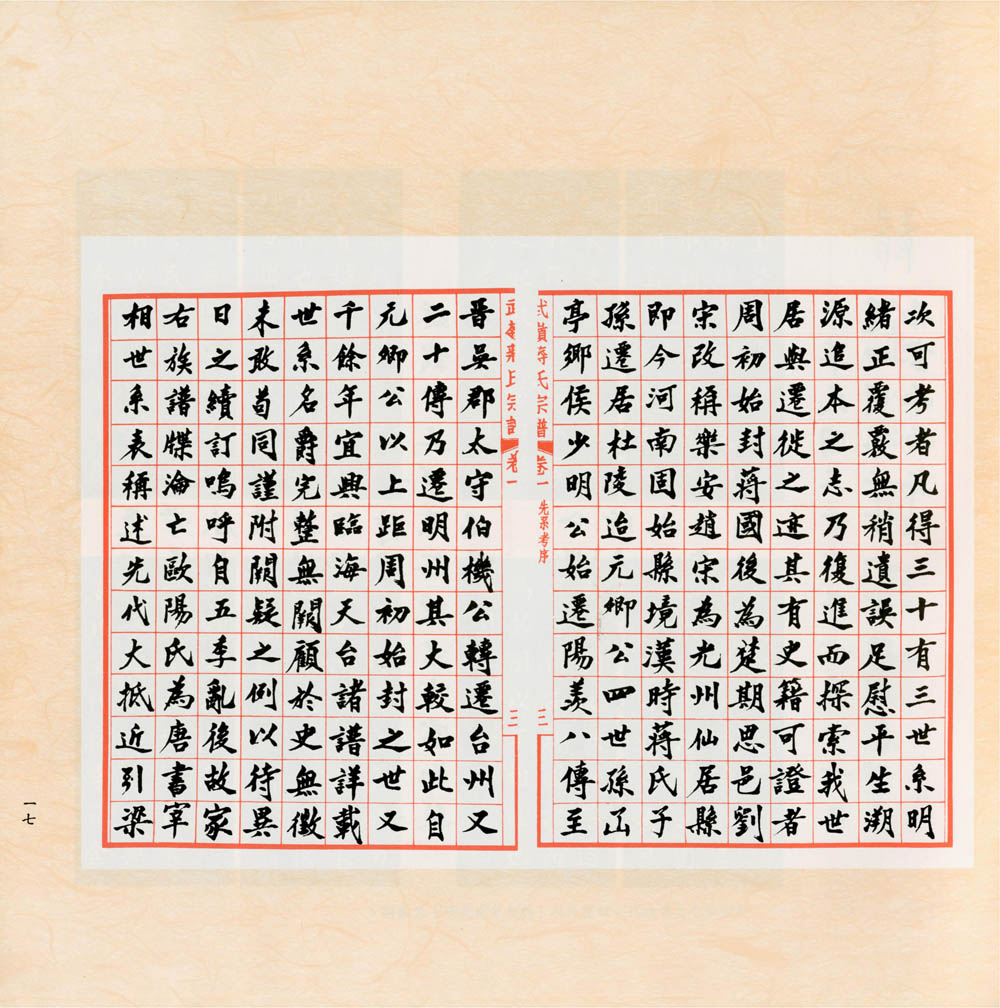 次可考者凡得三十有三世系明
緒正覆覈無稍遺誤足慰平生溯
源追本之志乃復進而探索我世
居與遷徙之迹其有史籍可證者
周初始封蔣國後為楚期思邑劉
宋改稱樂安趙宋為光州仙居縣
即今河南固始縣境漢時蔣氏子
孫遷居杜陵迨元卿公四世孫𠙶
亭鄉侯少明公始遷陽羨八傳至
武嶺蔣氏宗譜 卷一 先系考序 三
武嶺蔣氏宗譜 卷一 三
晉吳郡太守伯機公轉遷台州又
二十傳乃遷明州其大較如此自
元卿公以上距周初始封之世又
千餘年宜興臨海天台諸譜詳載
世系名爵完整無闕顧於史無徵
未敢苟同謹附闕疑之例以待異
日之續訂嗚呼自五季亂後故家
右族譜牒淪亡歐陽氏為唐書宰
相世系表稱述先代大抵近引梁
一七